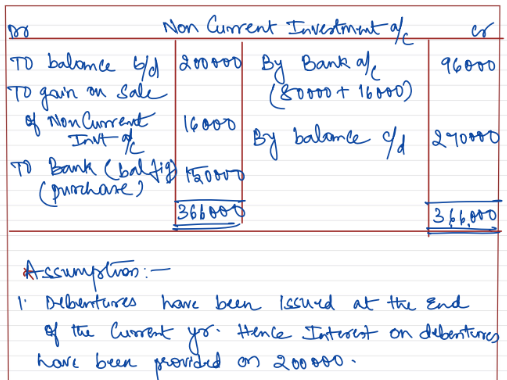 Dr Non Current Investment a/c cr
TO balance b/d 200000 By Bank a/c 96000
TO gain on sale (80000 + 16000)
of NonCurrent 16000
Invt a/c By balance c/d 270000
TO Bank (bal fig) 150000
(purchase)
366000 366000
Assumption:-
1. Debentures have been issued at the End
of the Current yr. Hence Interest on debentures
have been provided on 200000.